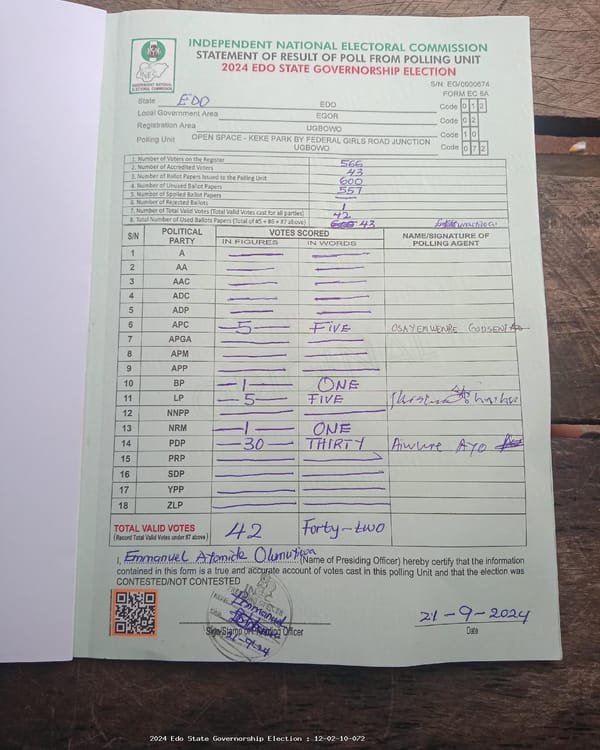 INDEPENDENT NATIONAL ELECTORAL COMMISSION
STATEMENT OF RESULT OF POLL FROM POLLING UNIT
2024 EDO STATE GOVERNORSHIP ELECTION
INDEPENDENT NATIONAL ELECTORAL COMMISSION
S/N: EG/0000674
FORM EC 8A
State EDO EDO Code 0 1 2
Local Government Area EGOR Code 0 2
Registration Area UGBOWO Code 1 0
Polling Unit OPEN SPACE - KEKE PARK BY FEDERAL GIRLS ROAD JUNCTION UGBOWO Code 0 7 2
1. Number of Voters on the Register 566
2. Number of Accredited Voters 43
3. Number of Ballot Papers Issued to the Polling Unit 600
4. Number of Unused Ballot Papers 557
5. Number of Spoiled Ballot Papers
6. Number of Rejected Ballots 1
7. Number of Total Valid Votes (Total Valid Votes cast for all parties) 42
8. Total Number of Used Ballot Papers (Total of #5 + #6 + #7 above) 43
S/N POLITICAL PARTY VOTES SCORED NAME/SIGNATURE OF POLLING AGENT
IN FIGURES IN WORDS
1 A
2 AA
3 AAC
4 ADC
5 ADP
6 APC 5 FIVE OSAYEMWENRE GODSENT
7 APGA
8 APM
9 APP
10 BP 1 ONE
11 LP 5 FIVE
12 NNPP
13 NRM 1 ONE
14 PDP 30 THIRTY AYO
15 PRP
16 SDP
17 YPP
18 ZLP
TOTAL VALID VOTES 42 Forty-two
(Record Total Valid Votes under #7 above)
I, Emmanuel Ayomide (Name of Presiding Officer) hereby certify that the information
contained in this form is a true and accurate account of votes cast in this polling Unit and that the election was
CONTESTED/NOT CONTESTED
Emmanuel
21-9-24
Sign/Stamp of Presiding Officer
21-9-2024
Date
2024 Edo State Governorship Election : 12-02-10-072